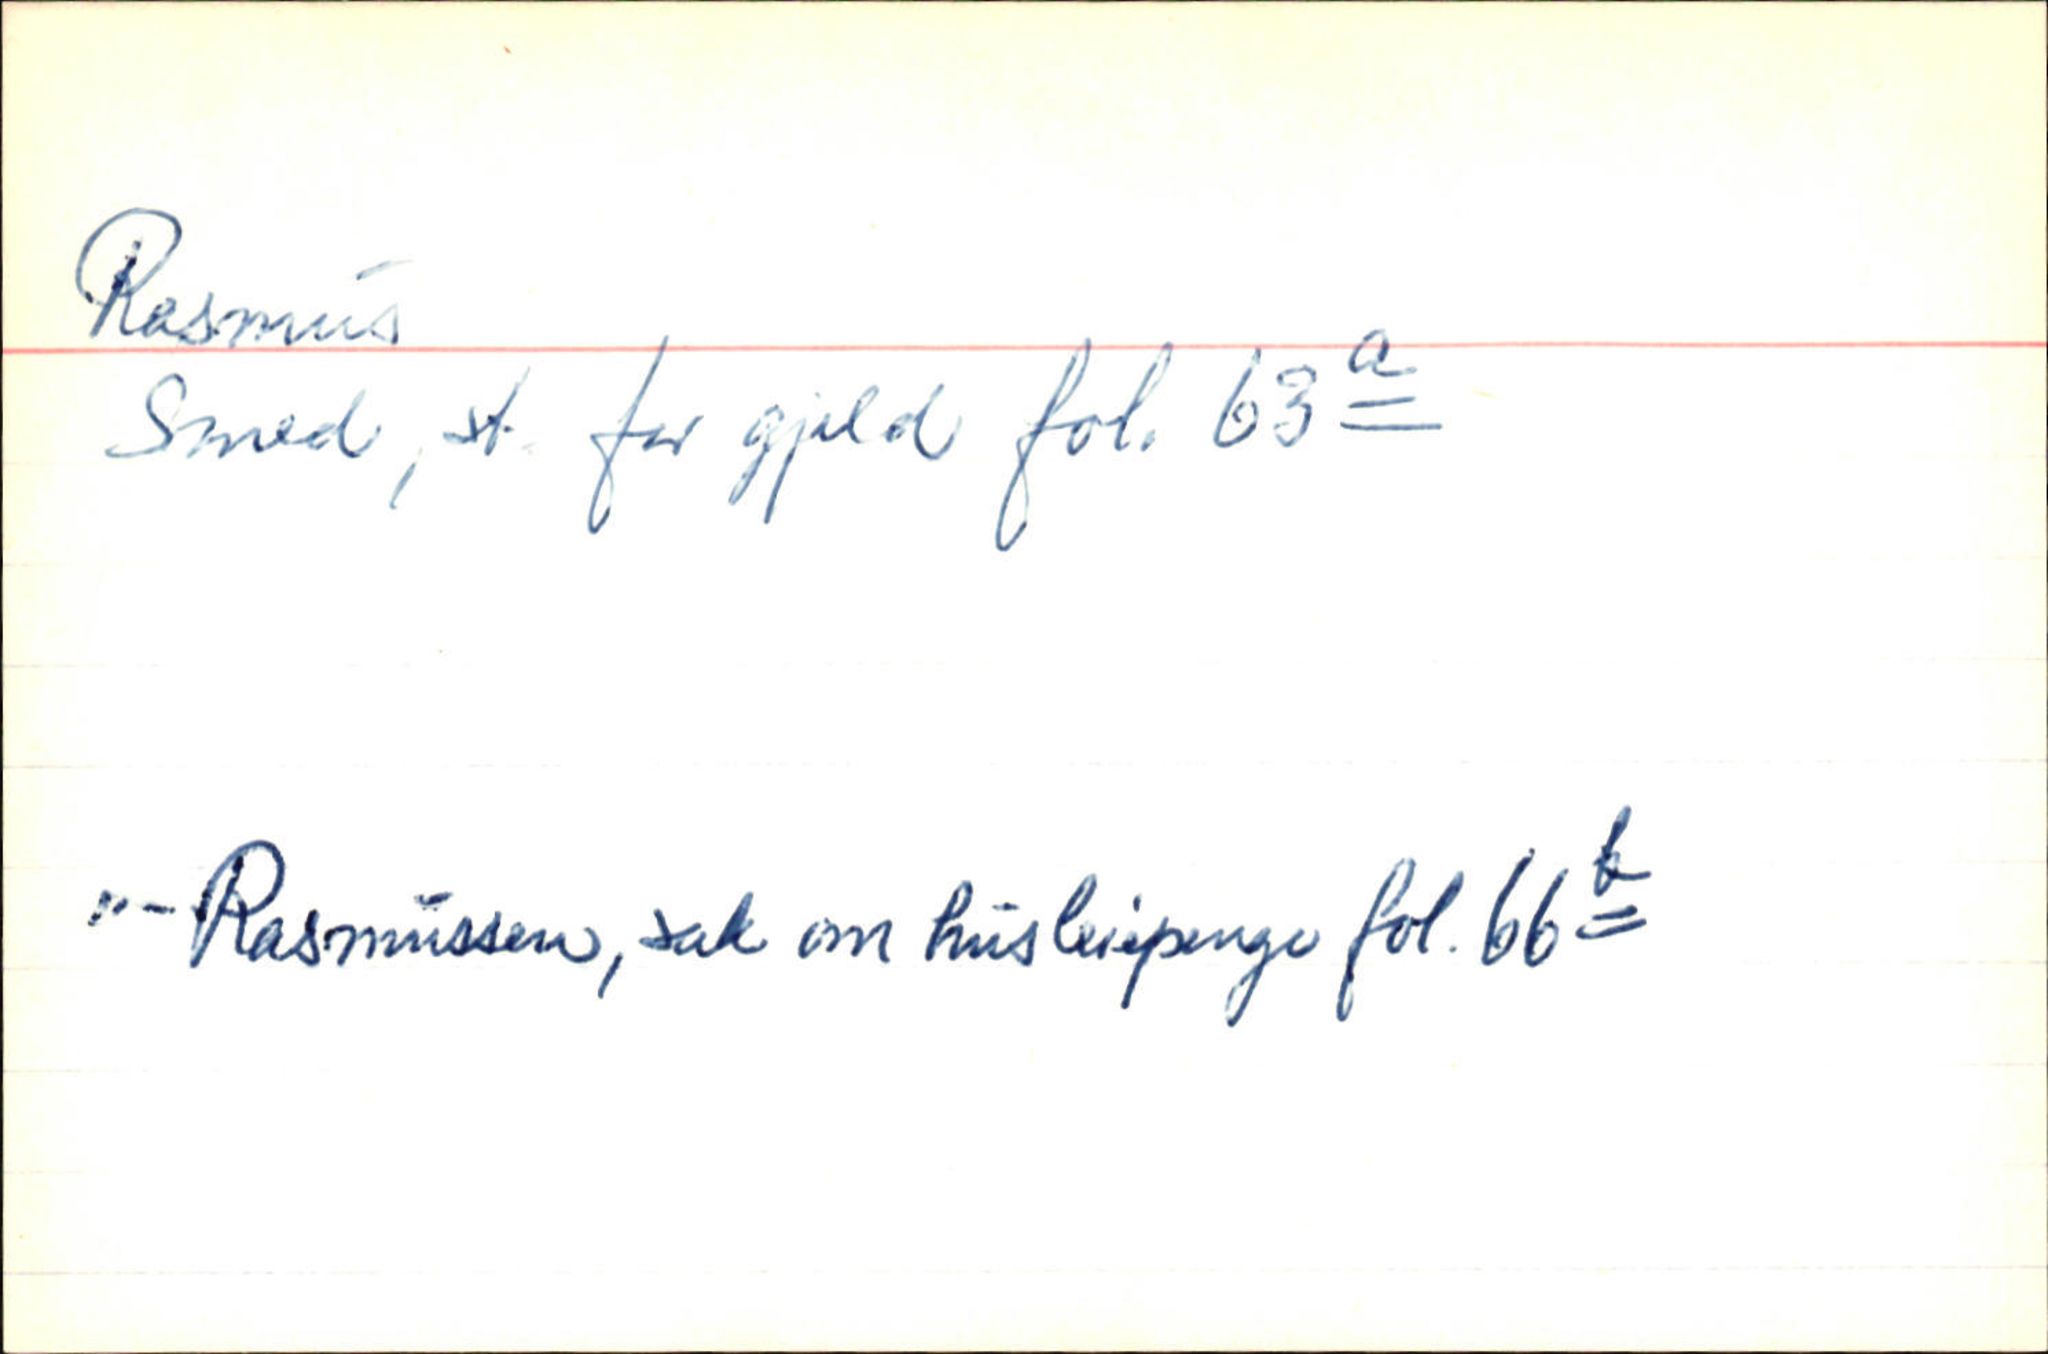 Rasmus
Smed, st. for gjeld fol. 63a
"- Rasmussen, sak om husleiepenge fol. 66b